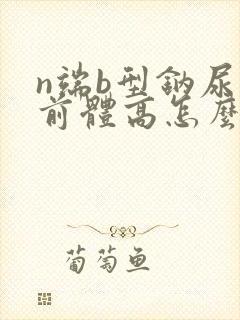 n端b型鈉尿
前體高怎麼
葡萄鱼